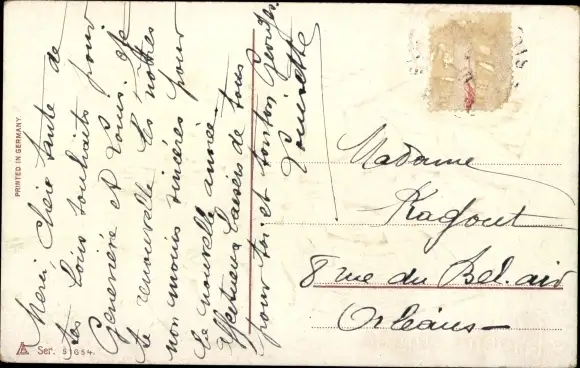 Merci chère tante de
tes bons souhaits pour
Geneviève et Louis. Je
te renouvelle les nôtres
non moins sincères pour
la nouvelle année.
Affectueux baisers de tous
pour toi et tonton Georges.
Louisette
Madame
Ragout
8 rue du Bel-air
Orléans
PRINTED IN GERMANY.
Ser. 5654.